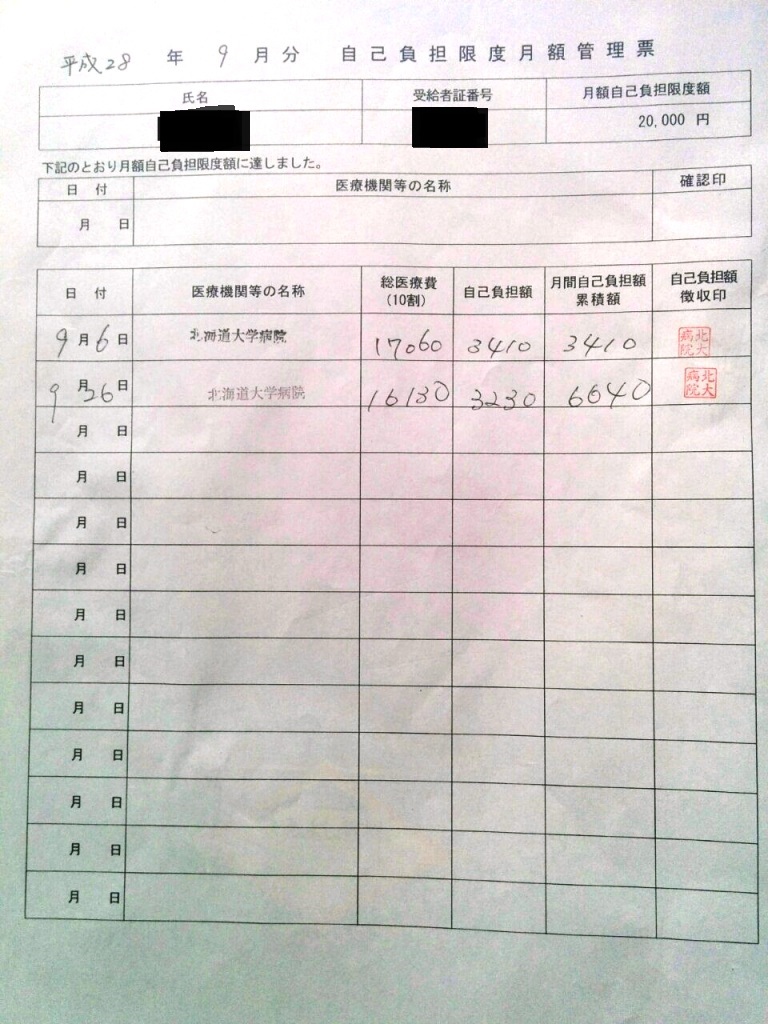 平成28 年 9 月分 自己負担限度月額管理票
氏名 受給者証番号 月額自己負担限度額
20,000 円
下記のとおり月額自己負担限度額に達しました。
日 付 医療機関等の名称 確認印
月 日
日 付 医療機関等の名称 総医療費(10割) 自己負担額 月間自己負担額累積額 自己負担額徴収印
9月6日 北海道大学病院 17060 3410 3410 北大病院
9月26日 北海道大学病院 16130 3230 6640 北大病院
月 日
月 日
月 日
月 日
月 日
月 日
月 日
月 日
月 日
月 日
月 日